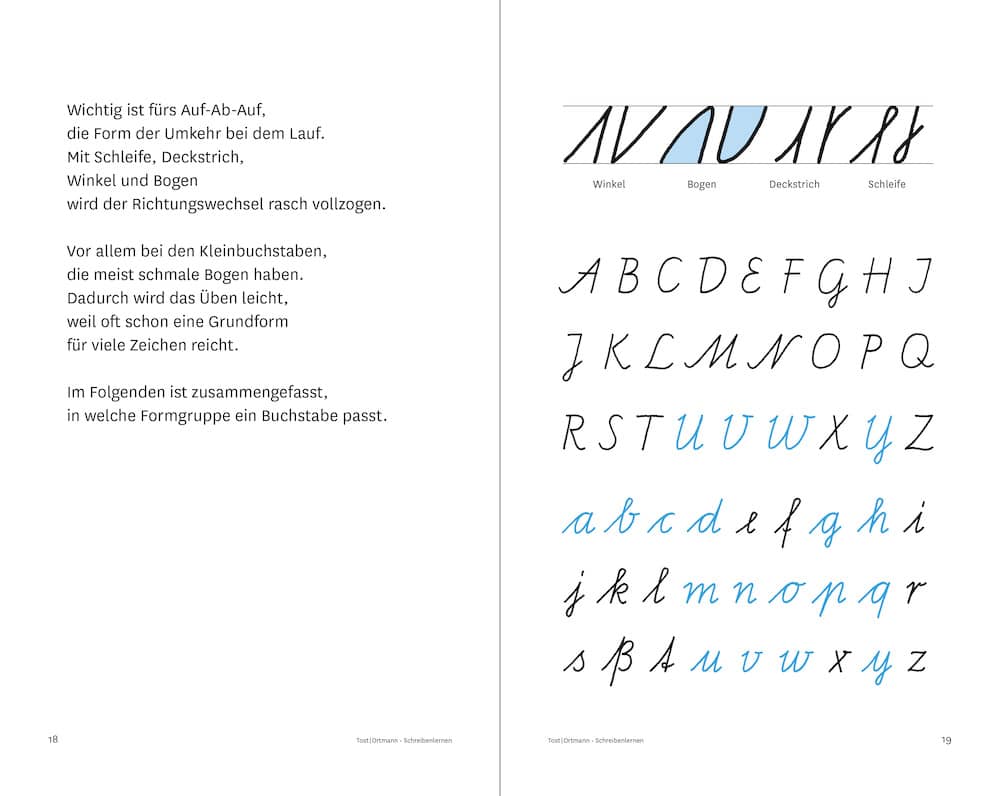 Wichtig ist fürs Auf-Ab-Auf,
die Form der Umkehr bei dem Lauf.
Mit Schleife, Deckstrich,
Winkel und Bogen
wird der Richtungswechsel rasch vollzogen.
Vor allem bei den Kleinbuchstaben,
die meist schmale Bogen haben.
Dadurch wird das Üben leicht,
weil oft schon eine Grundform
für viele Zeichen reicht.
Im Folgenden ist zusammengefasst,
in welche Formgruppe ein Buchstabe passt.
18
Tost|Ortmann - Schreibenlernen
Winkel Bogen Deckstrich Schleife
A B C D E F G H I
J K L M N O P Q
R S T U V W X Y Z
a b c d e f g h i
j k l m n o p q r
s ß t u v w x y z
Tost|Ortmann - Schreibenlernen
19